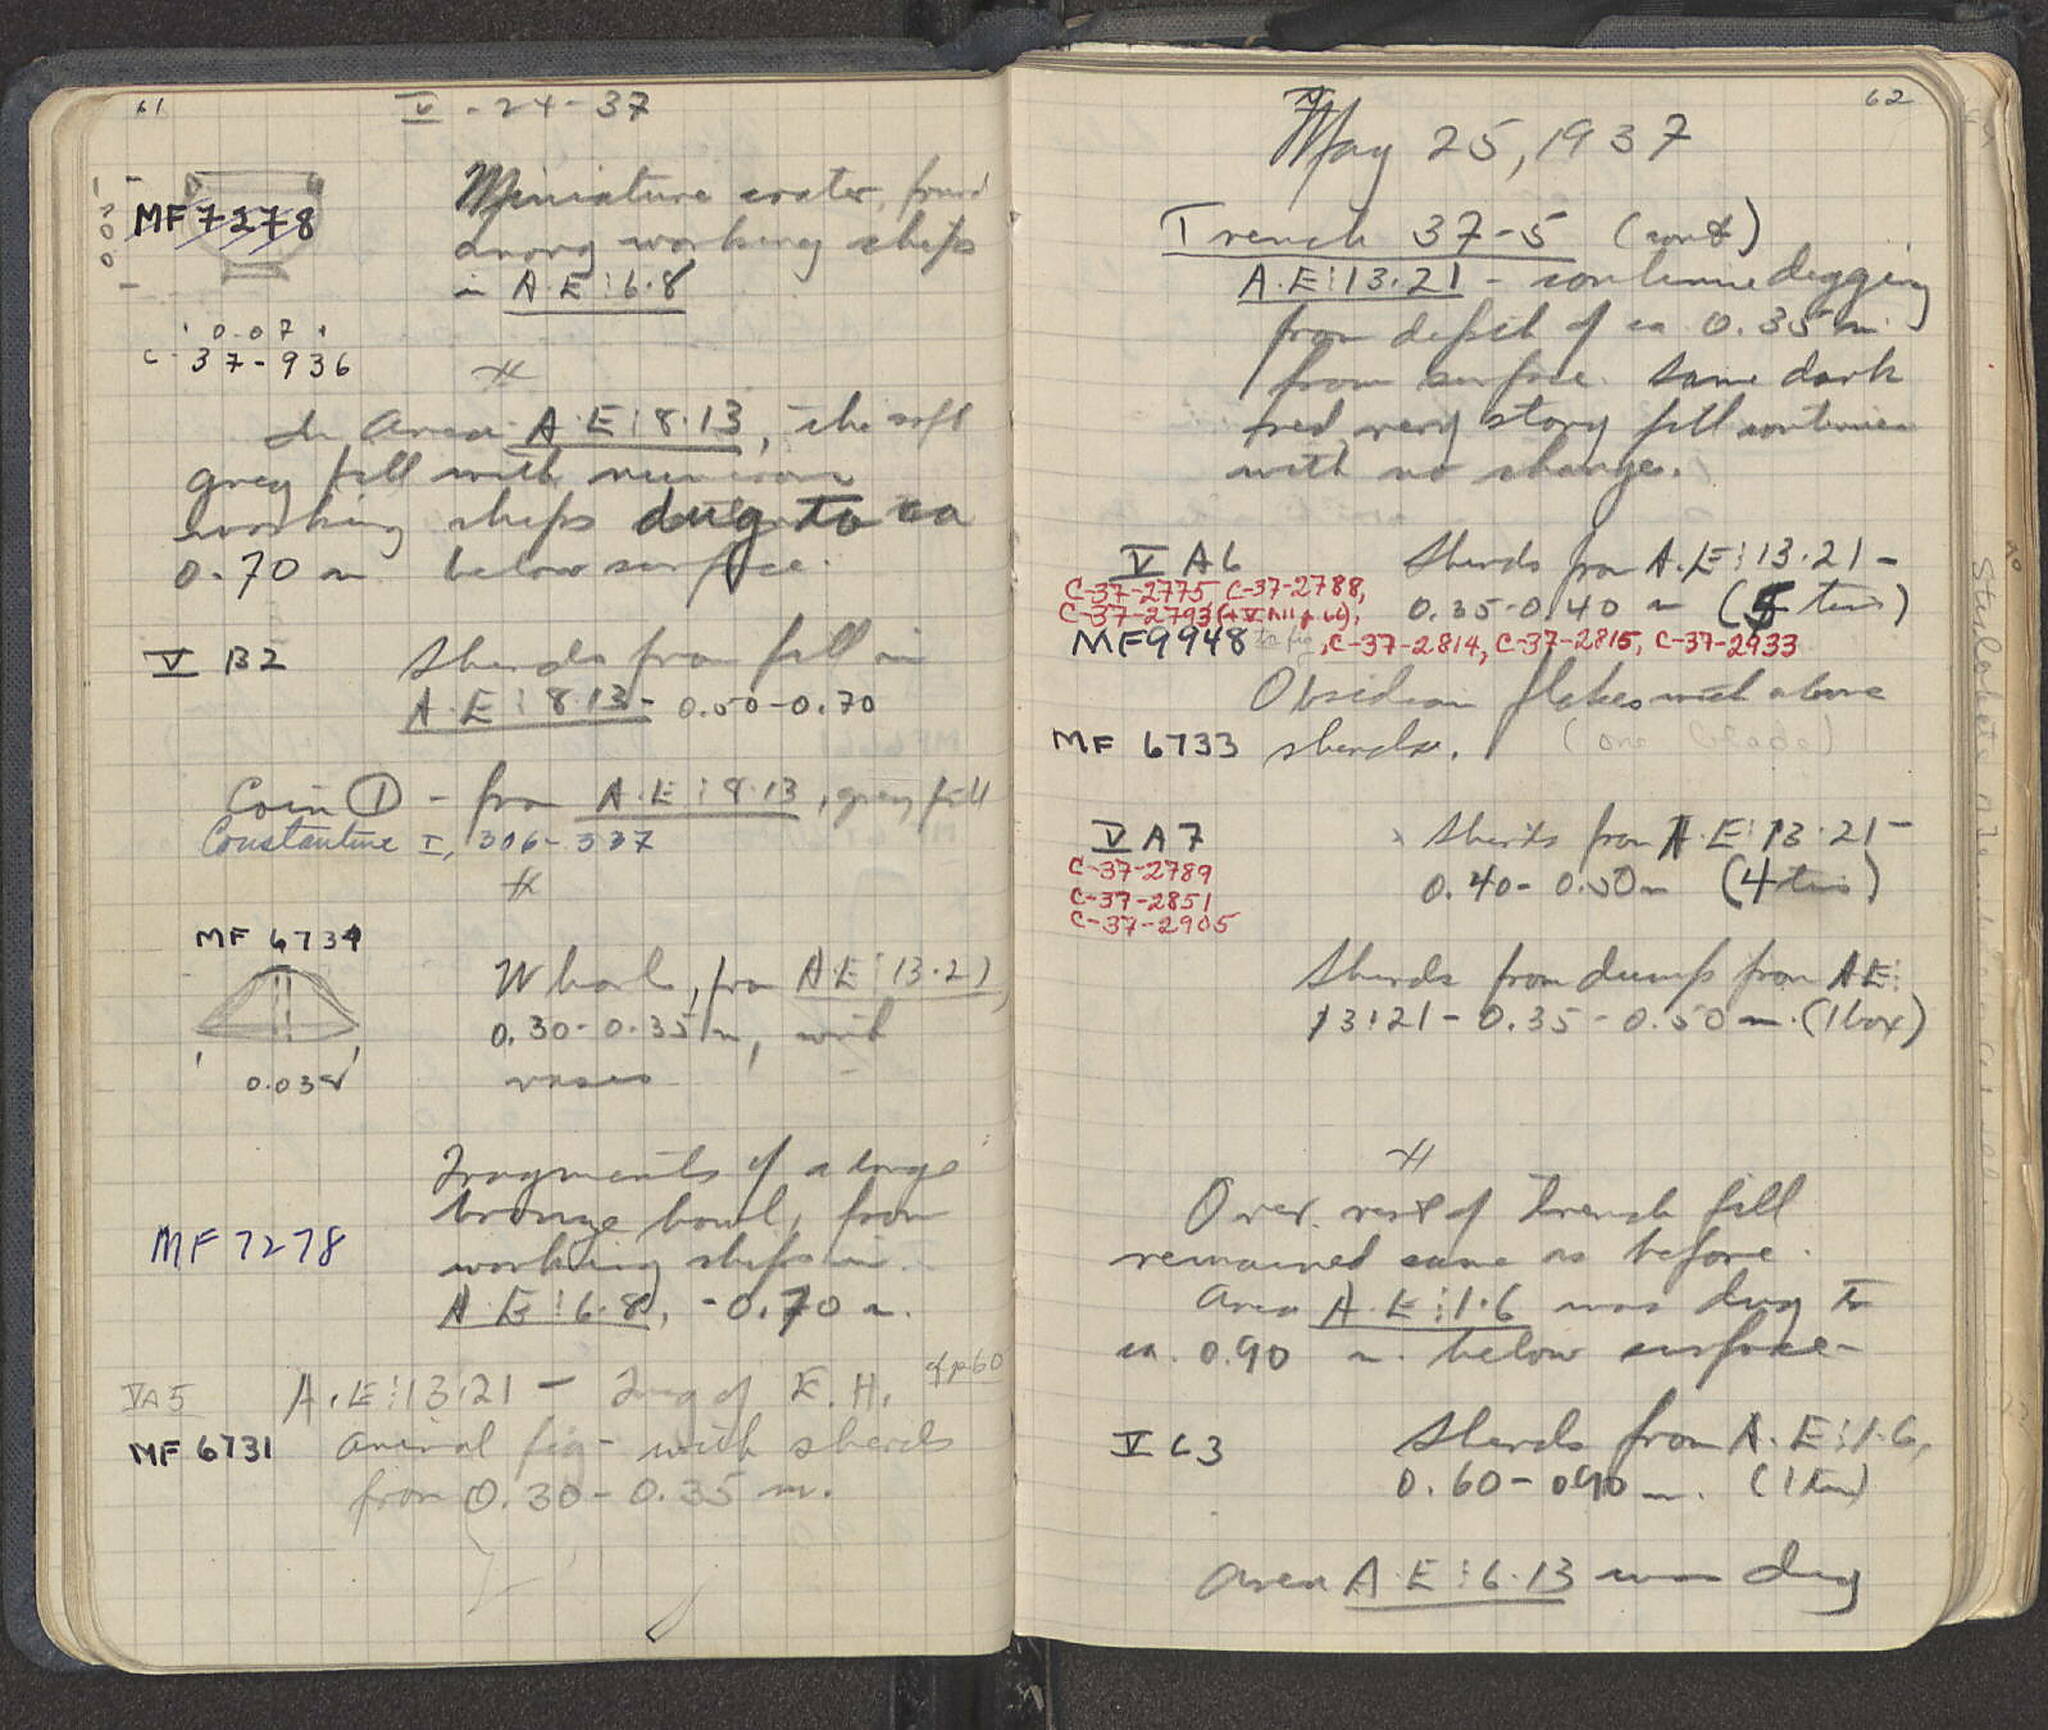 61
V - 24 - 37
MF 7278
Miniature crater, found
among working chips
in A.E:6.8
0.07
C-37-936
In Area A.E:8.13, the soft
grey fill with numerous
working chips dug to ca
0.70 m below surface.
V B2
Sherds from fill in
A.E:8.13- 0.50-0.70
Coin 1 - from A.E:8.13, grey fill
Constantine I, 306-337
MF 6734
Whorl, from A.E:13.21,
0.30-0.35 m, with
vases
0.035
Fragments of a large
bronze bowl, from
MF 7278
working chips in
A.E:6.8, -0.70 m.
cf p60
VA5
A.E:13.21 - Frag of E.H.
MF 6731
animal fig- with sherds
from 0.30-0.35 m.
62
May 25, 1937
Trench 37-5 (cont)
A.E:13.21 - continue digging
from depth of ca 0.35 m
from surface. Same dark
red, very stony fill continues
with no change.
V A6
Sherds from A.E:13.21-
C-37-2775, C-37-2788,
0.35-0.40 m (5 tins)
C-37-2793 (+V A11 p. 66),
MF9948 to fig, C-37-2814, C-37-2815, C-37-2933
Obsidian flakes with above
MF 6733 sherds. (one blade)
V A7
Sherds from A.E:13.21-
0.40-0.50 m (4 tins)
C-37-2789
C-37-2851
C-37-2905
Sherds from dump from A.E:
13:21 - 0.35-0.50 m. (1 box)
Over rest of trench fill
remained same as before.
Area A.E:1.6 was dug to
ca. 0.90 m. below surface-
V C3
Sherds from A.E:1.6,
0.60-0.90 m. (1 tin)
Area A.E:6.13 was dug